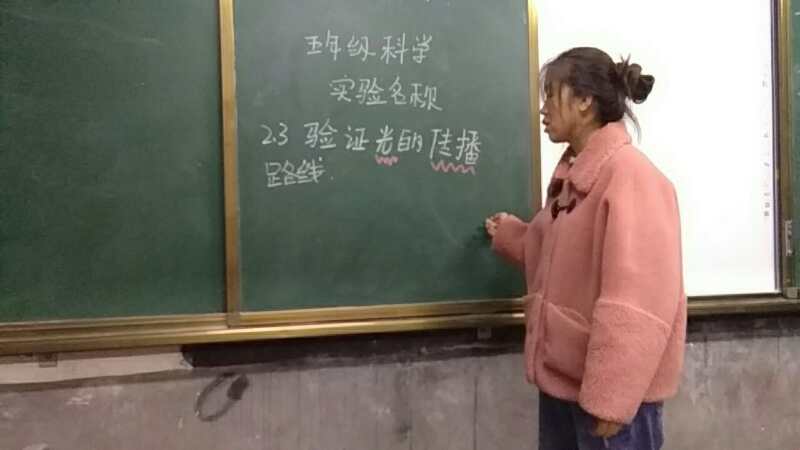 五年级科学
实验名称
2.3 验证光的传播
路线.